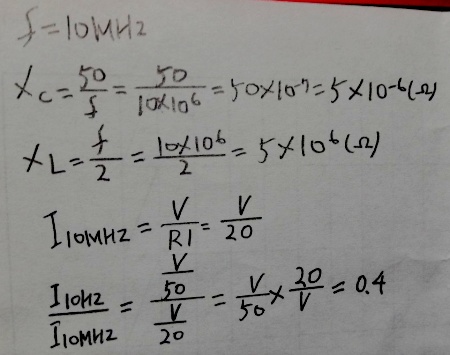 f=10MHz
Xc=50/f=50/10×10⁶=50×10⁻⁷=5×10⁻⁶(Ω)
XL=f/2=10×10⁶/2=5×10⁶(Ω)
I10MHz=V/R1=V/20
I10Hz/I10MHz=V/50/V/20=V/50×20/V=0.4